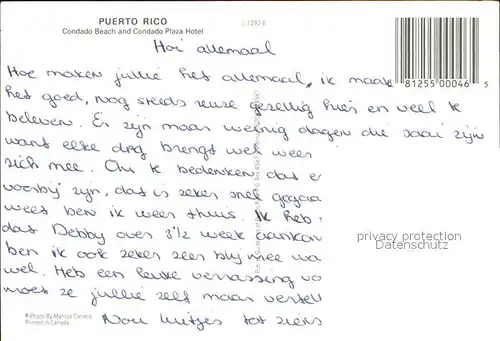 PUERTO RICO
Condado Beach and Condado Plaza Hotel
Hoi allemaal
Hoe maken jullie het allemaal, ik maak
het goed, nog steeds reuze gezellig hier en veel te
beleven. Er zijn maar weinig dagen die saai zijn
want elke dag brengt wel weer
zich mee. Om te bedenken dat e
voorbij zijn, dat is zeker snel gegaa
weet ben ik weer thuis. Ik heb
dat Debby over 3 1/2 week aankom
ben ik ook zeker zeer blij mee wa
wel. Heb een leuke verrassing vo
moet ze jullie zelf maar vertell
Nou luitjes tot ziens
81255 00046 5
privacy protection
Datenschutz
Photo By Marisa Carrero
Printed in Canada